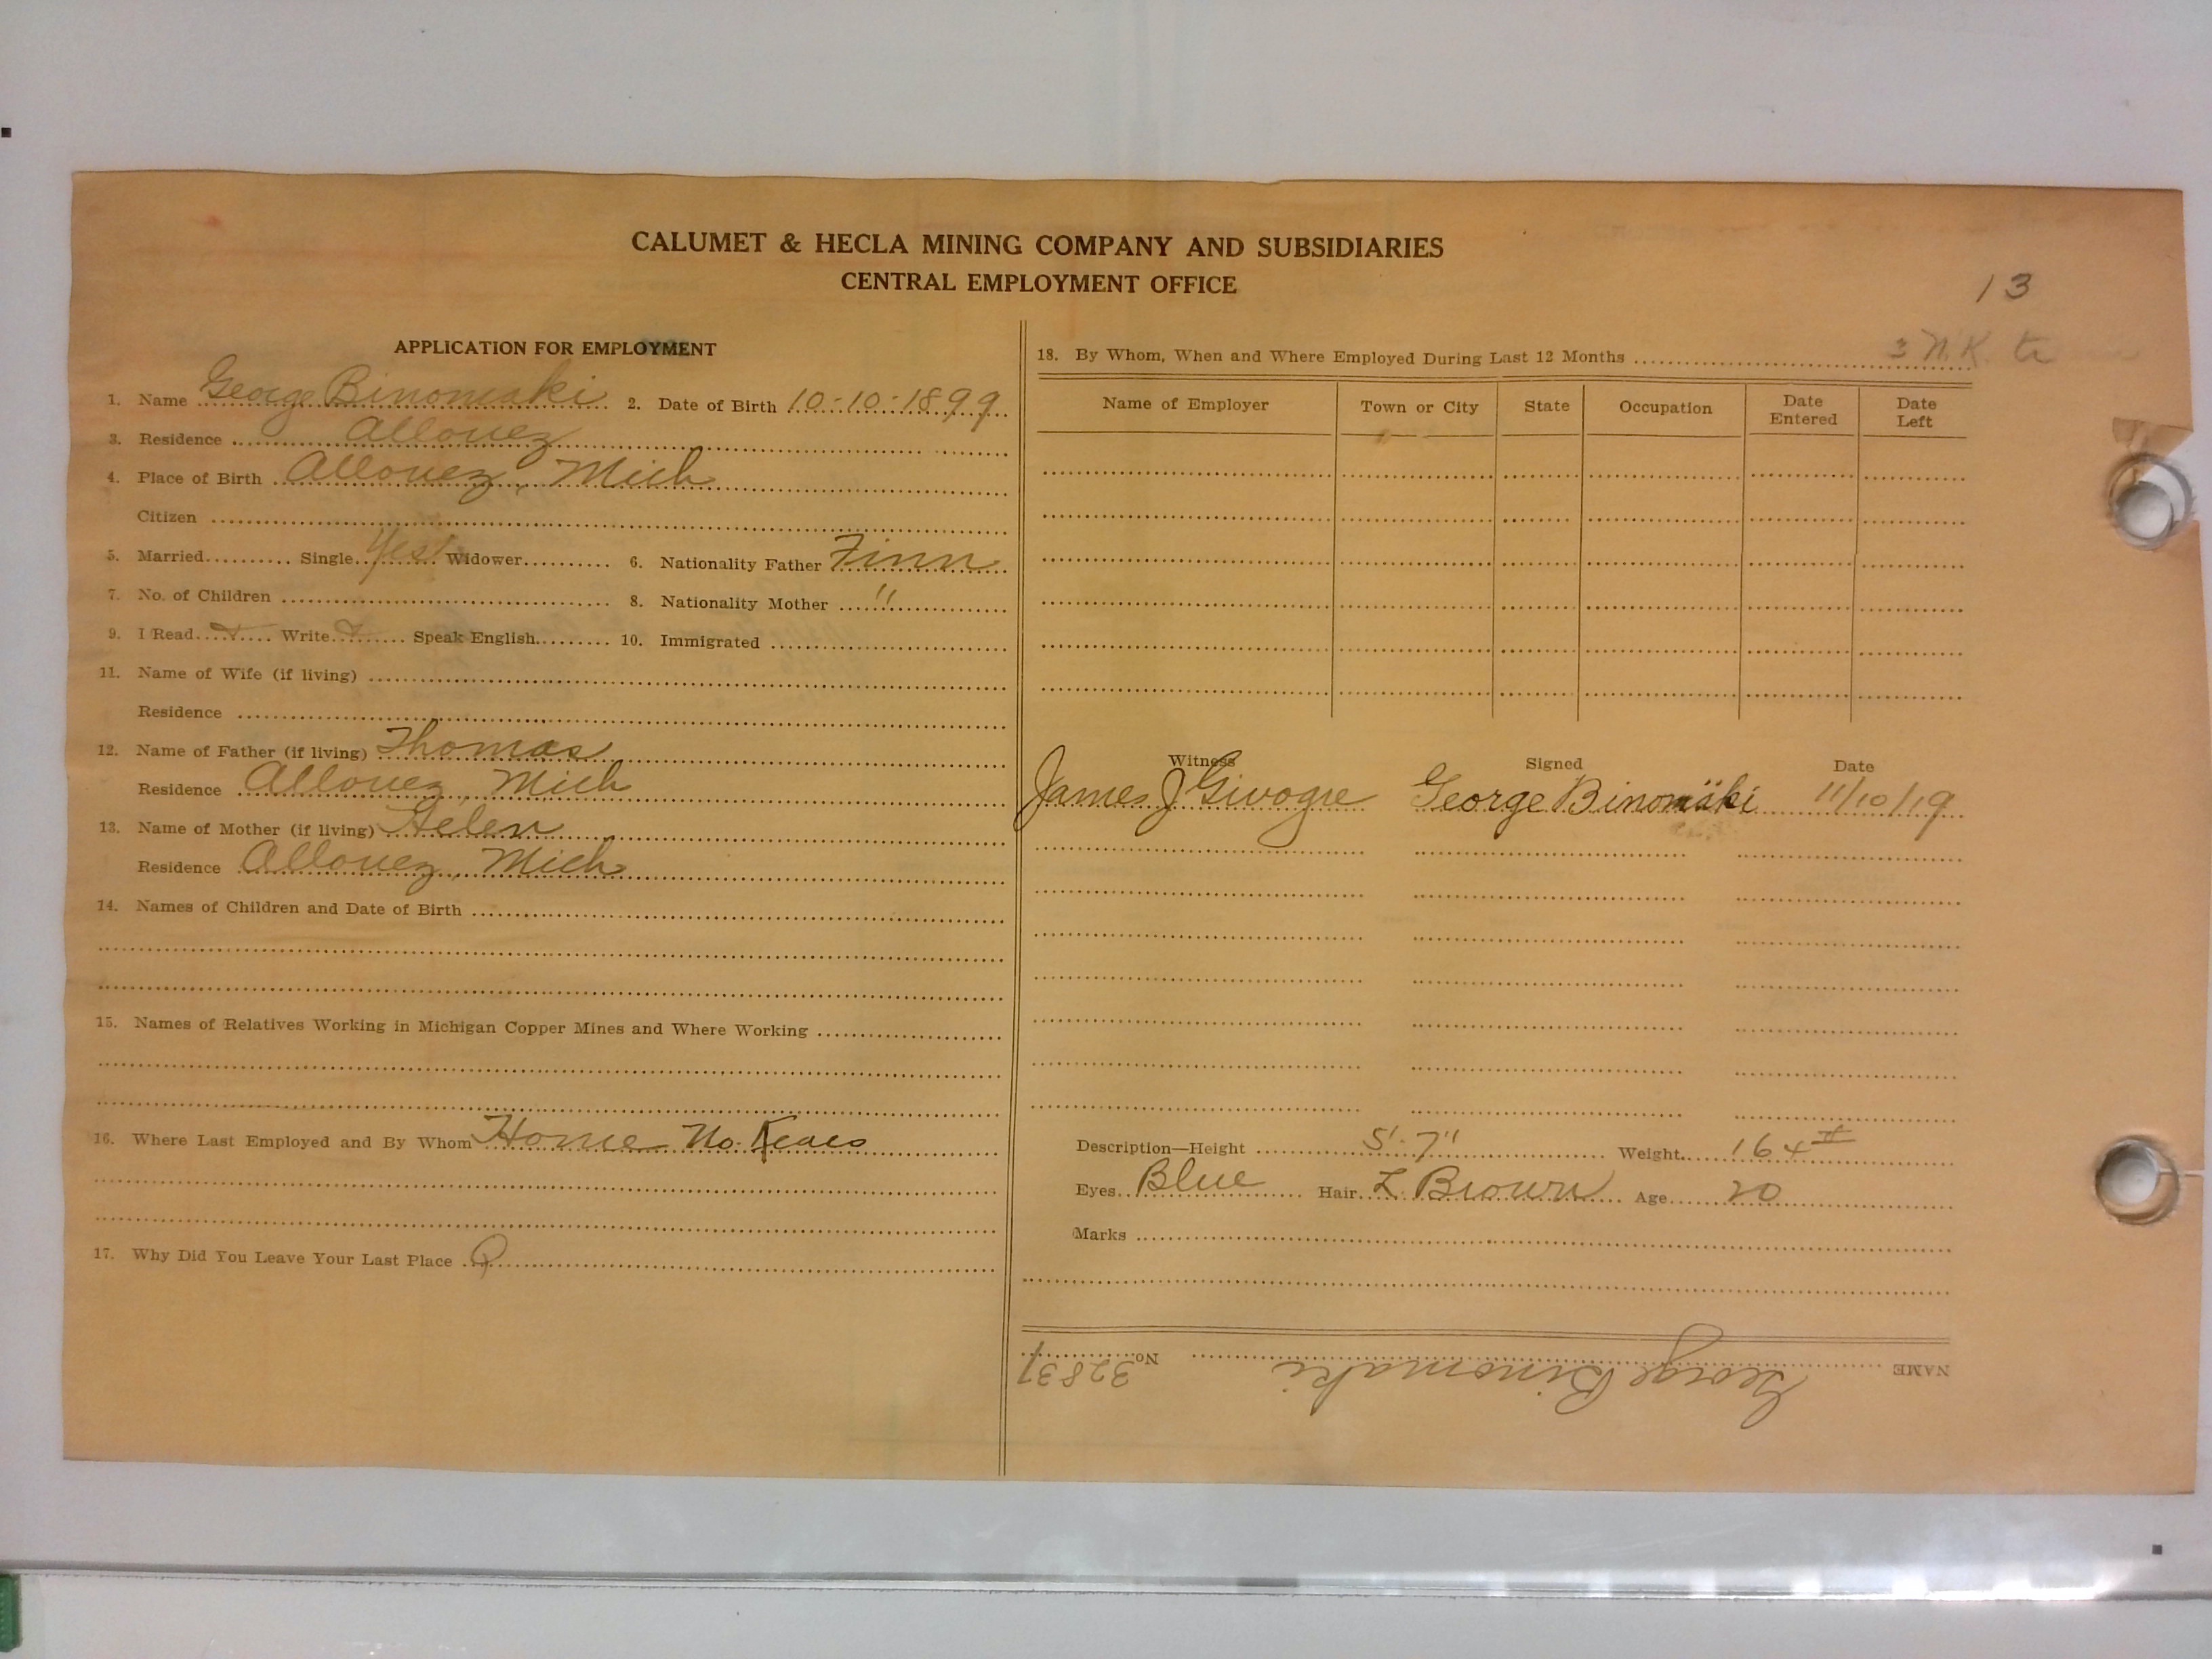 CALUMET & HECLA MINING COMPANY AND SUBSIDIARIES
CENTRAL EMPLOYMENT OFFICE
13
APPLICATION FOR EMPLOYMENT
1. Name George Binomaki 2. Date of Birth 10-10-1899
3. Residence Allouez
4. Place of Birth Allouez, Mich
Citizen
5. Married Single Yes Widower 6. Nationality Father Finn
7. No. of Children 8. Nationality Mother "
9. I Read Write Speak English 10. Immigrated
11. Name of Wife (if living)
Residence
12. Name of Father (if living) Thomas
Residence Allouez, Mich
13. Name of Mother (if living) Helen
Residence Allouez, Mich
14. Names of Children and Date of Birth
15. Names of Relatives Working in Michigan Copper Mines and Where Working
16. Where Last Employed and By Whom Home No. Kears
17. Why Did You Leave Your Last Place Q
18. By Whom, When and Where Employed During Last 12 Months 3 N.K. tr
Name of Employer Town or City State Occupation Date Entered Date Left
Witness Signed Date
James J George Binomäki 11/10/19
Description—Height 5'-7" Weight 164#
Eyes Blue Hair L Brown Age 20
Marks
NAME George Binomaki No. 32831